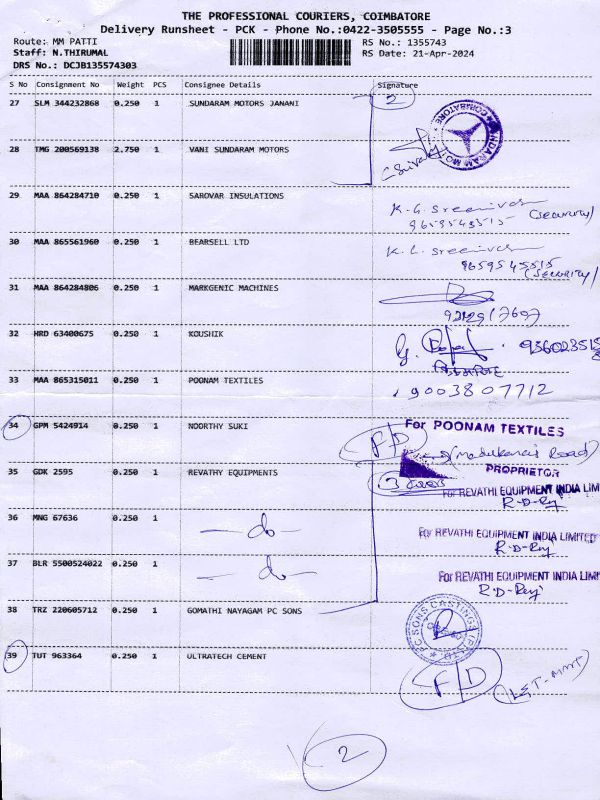 THE PROFESSIONAL COURIERS, COIMBATORE
Delivery Runsheet - PCK - Phone No.:0422-3505555 - Page No.:3
Route: MM PATTI
RS No.: 1355743
Staff: N.THIRUMAL
RS Date: 21-Apr-2024
DRS No.: DCJB135574303
S No Consignment No Weight PCS Consignee Details Signature
27 SLM 344232868 0.250 1 SUNDARAM MOTORS JANANI 2
28 TMG 200569138 2.750 1 VANI SUNDARAM MOTORS
29 MAA 864284710 0.250 1 SAROVAR INSULATIONS K. G. Sreenivasan
9659545515 (Security)
30 MAA 865561960 0.250 1 BEARSELL LTD K. L. Sreenivasan
9659545515
(Security)
31 MAA 864284806 0.250 1 MARKGENIC MACHINES
32 HRD 63400675 0.250 1 KOUSHIK
33 MAA 865315011 0.250 1 POONAM TEXTILES 9003807712
34 GPM 5424914 0.250 1 NOORTHY SUKI For POONAM TEXTILES
F/D
Road)
PROPRIETOR
35 GDK 2595 0.250 1 REVATHY EQUIPMENTS 3 Covers
For REVATHI EQUIPMENT INDIA LIM
36 MNG 67636 0.250 1 -do- For REVATHI EQUIPMENT INDIA LIMITED
37 BLR 5500524022 0.250 1 -do- For REVATHI EQUIPMENT INDIA LIMITE
38 TRZ 220605712 0.250 1 GOMATHI NAYAGAM PC SONS
39 TUT 963364 0.250 1 ULTRATECH CEMENT F/D
2